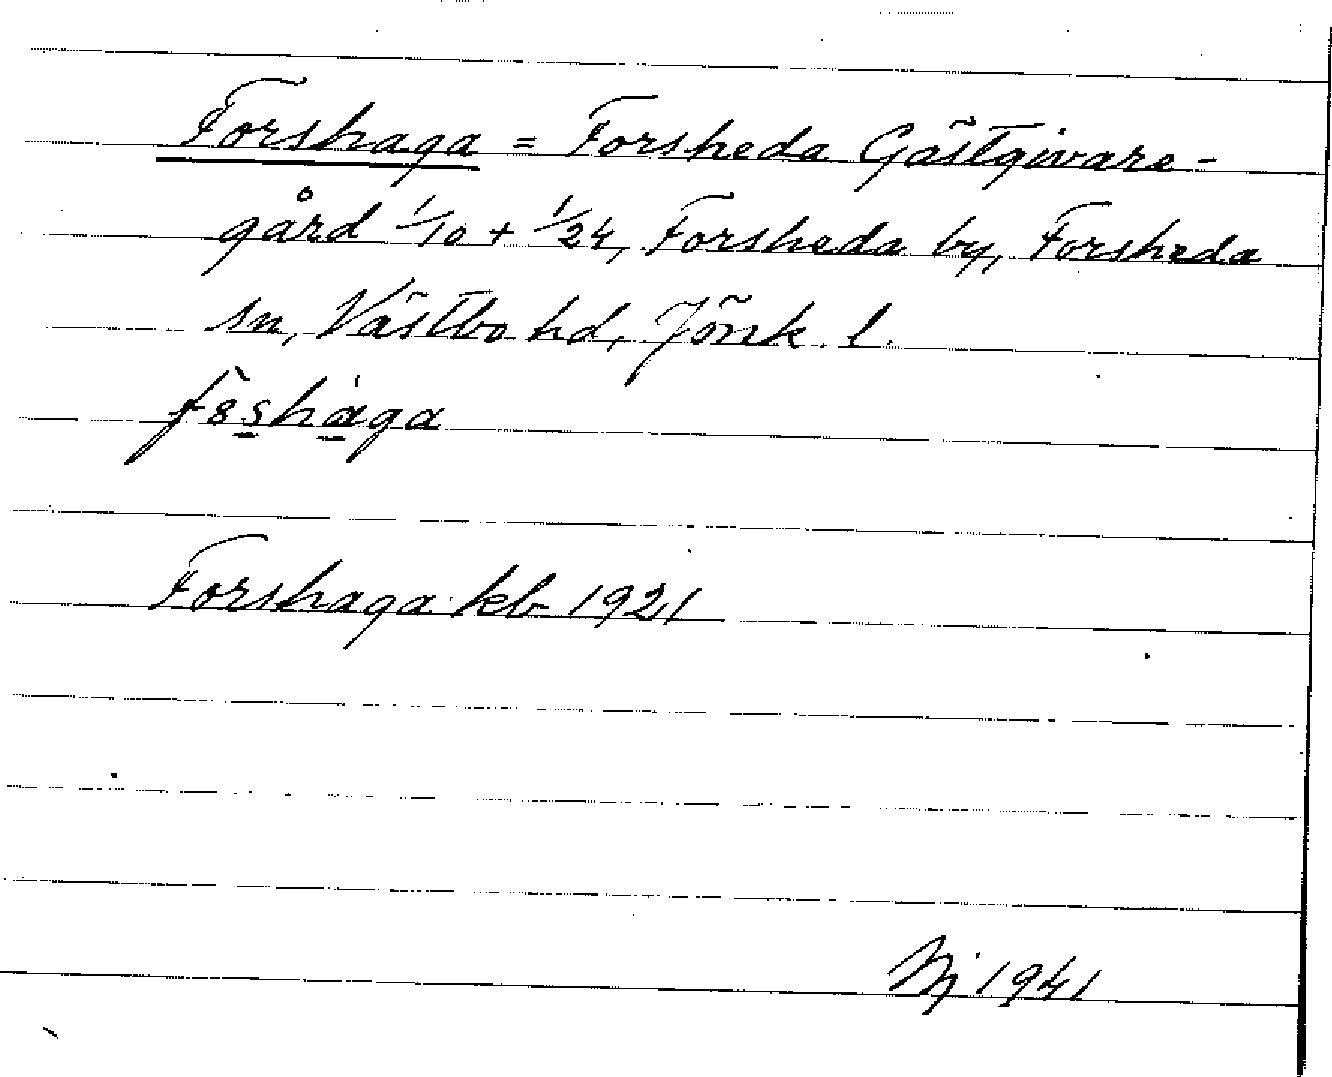 Forshaga = Forsheda Gästgivare-
gård 1/10 + 1/24, Forsheda by, Forsheda
sn, Västbo hd, Jönk. l.
Forshaga kb 1921
1941